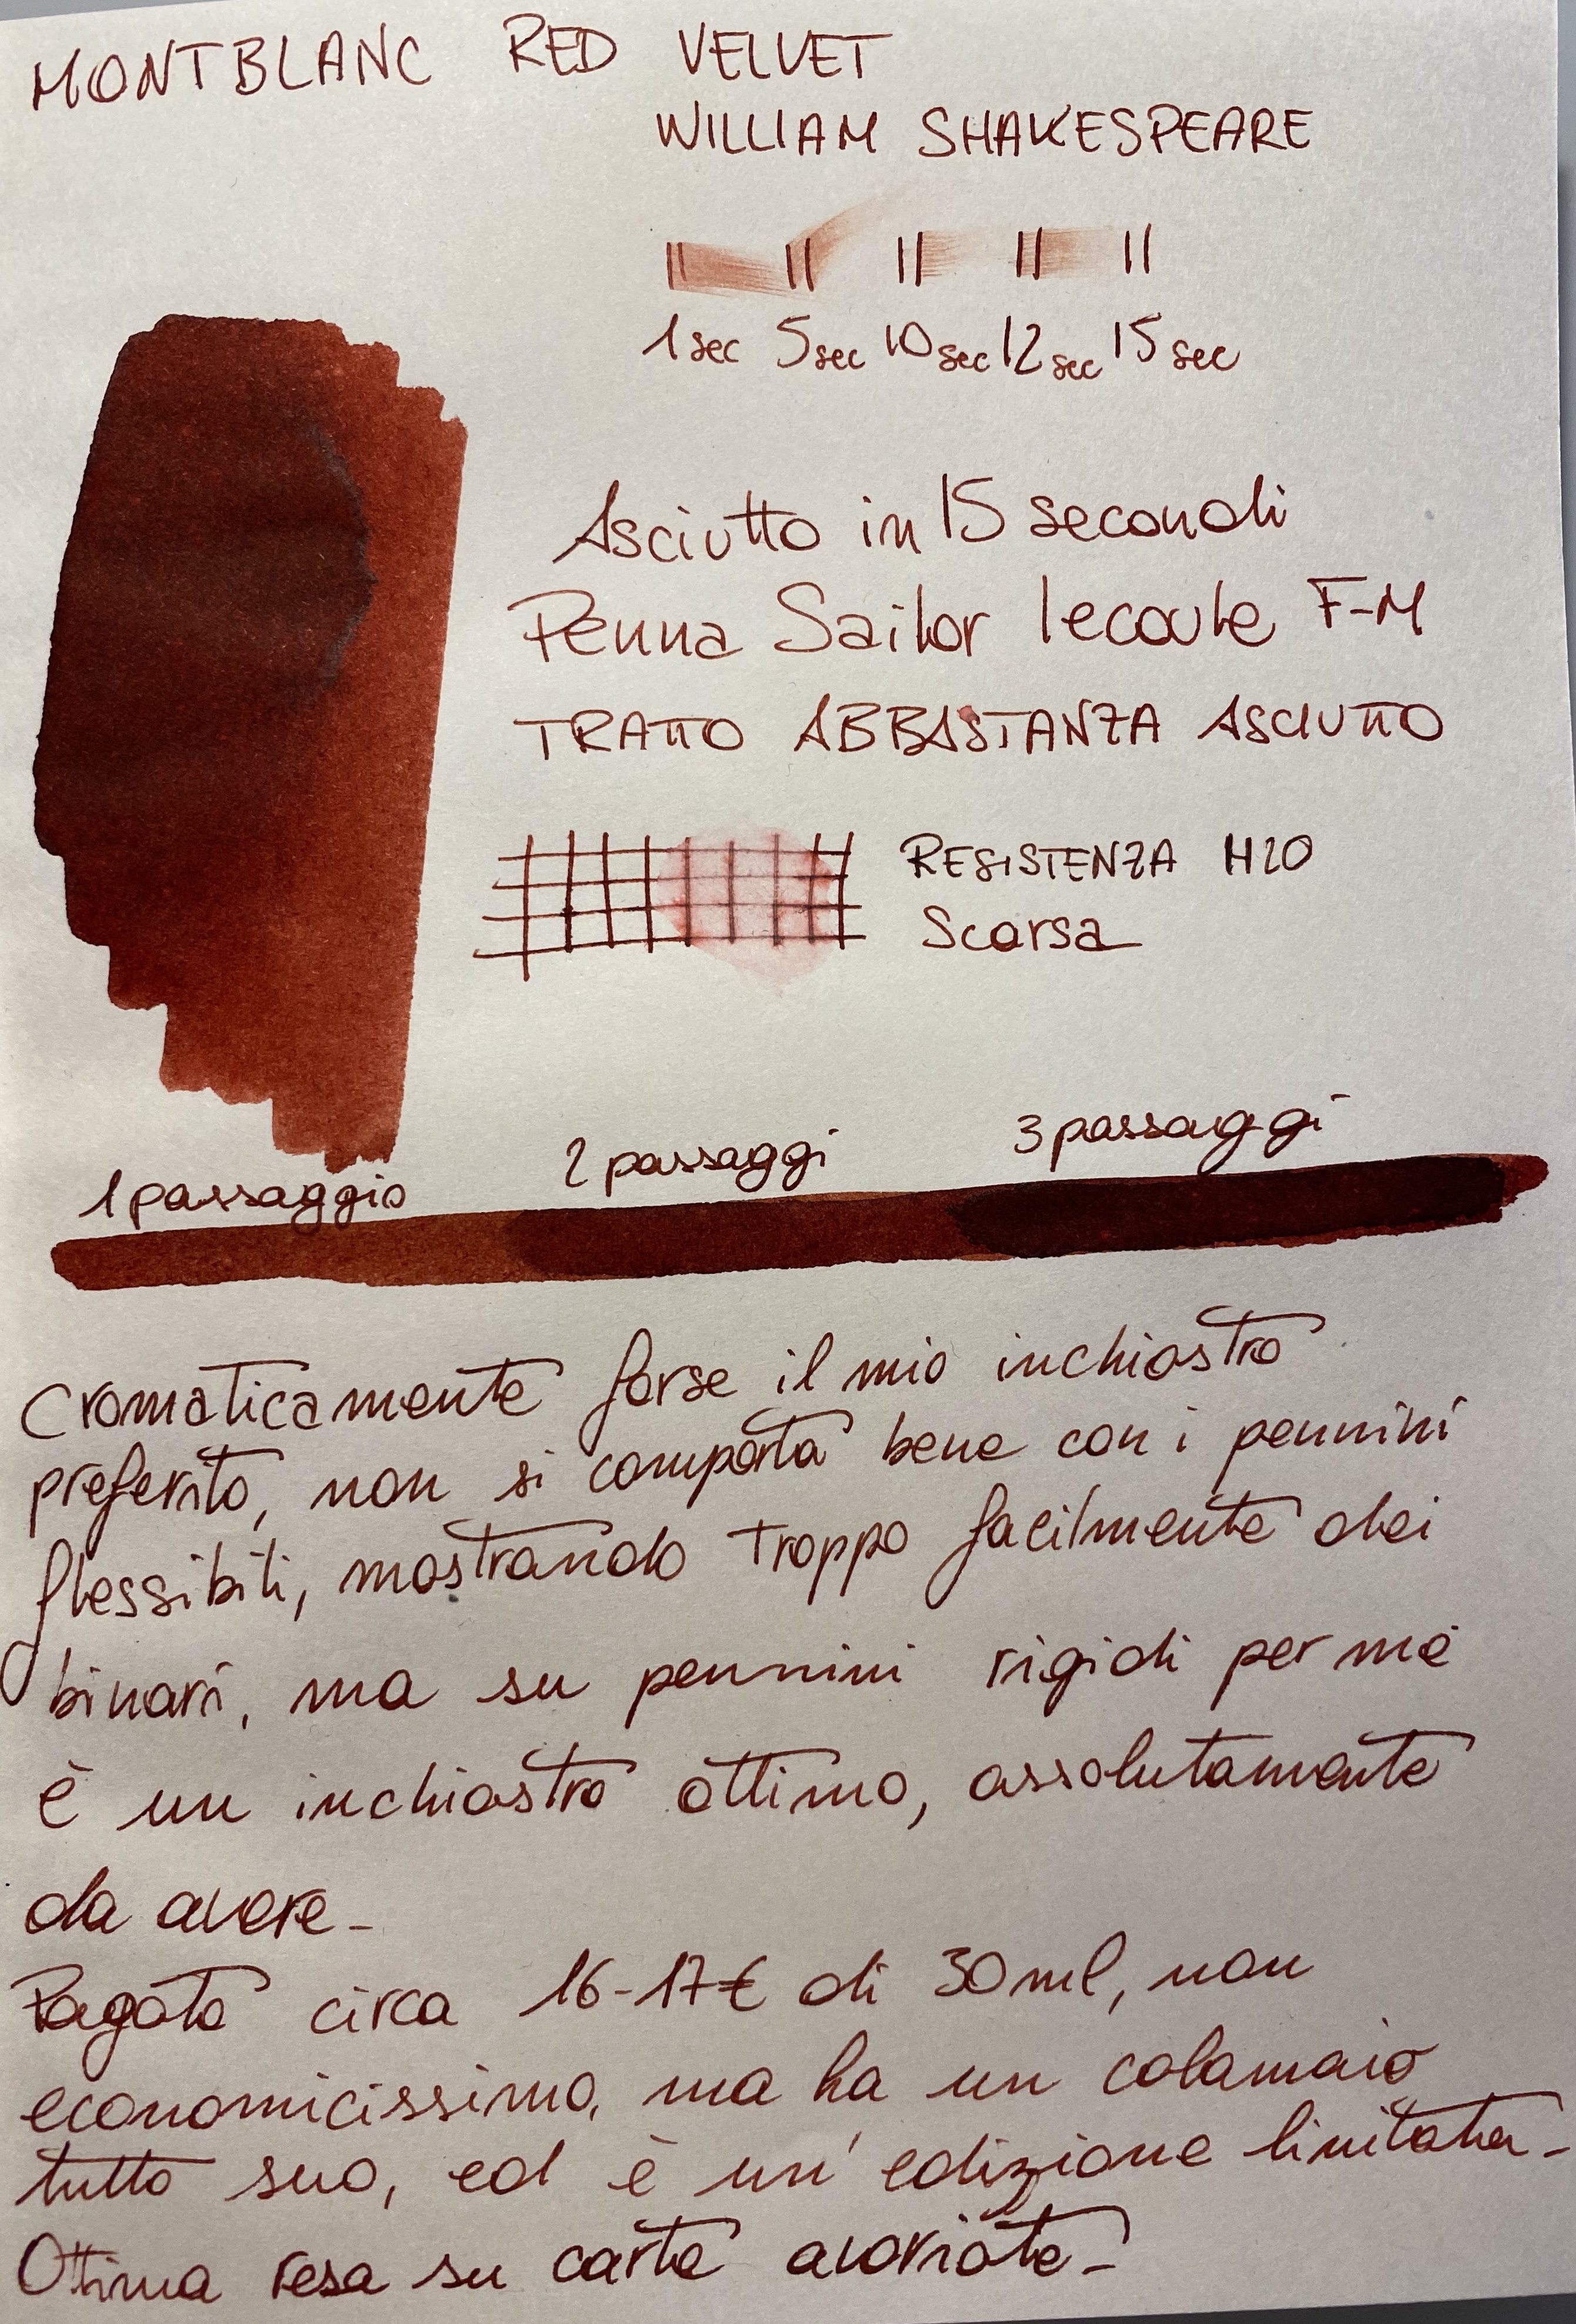 MONTBLANC RED VELVET
WILLIAM SHAKESPEARE
1 sec 5 sec 10 sec 12 sec 15 sec
Asciutto in 15 secondi
Penna Sailor lecoule F-M
TRATTO ABBASTANZA ASCIUTTO
RESISTENZA H2O
Scarsa
1 passaggio 2 passaggi 3 passaggi
Cromaticamente forse il mio inchiostro
preferito, non si comporta bene con i pennini
flessibili, mostrando troppo facilmente dei
binari, ma su pennini rigidi per me
è un inchiostro ottimo, assolutamente
da avere-
Pagato circa 16-17€ di 30ml, non
economicissimo, ma ha un calamaio
tutto suo, ed è un' edizione limitata-
Ottima resa su carte avoriate-